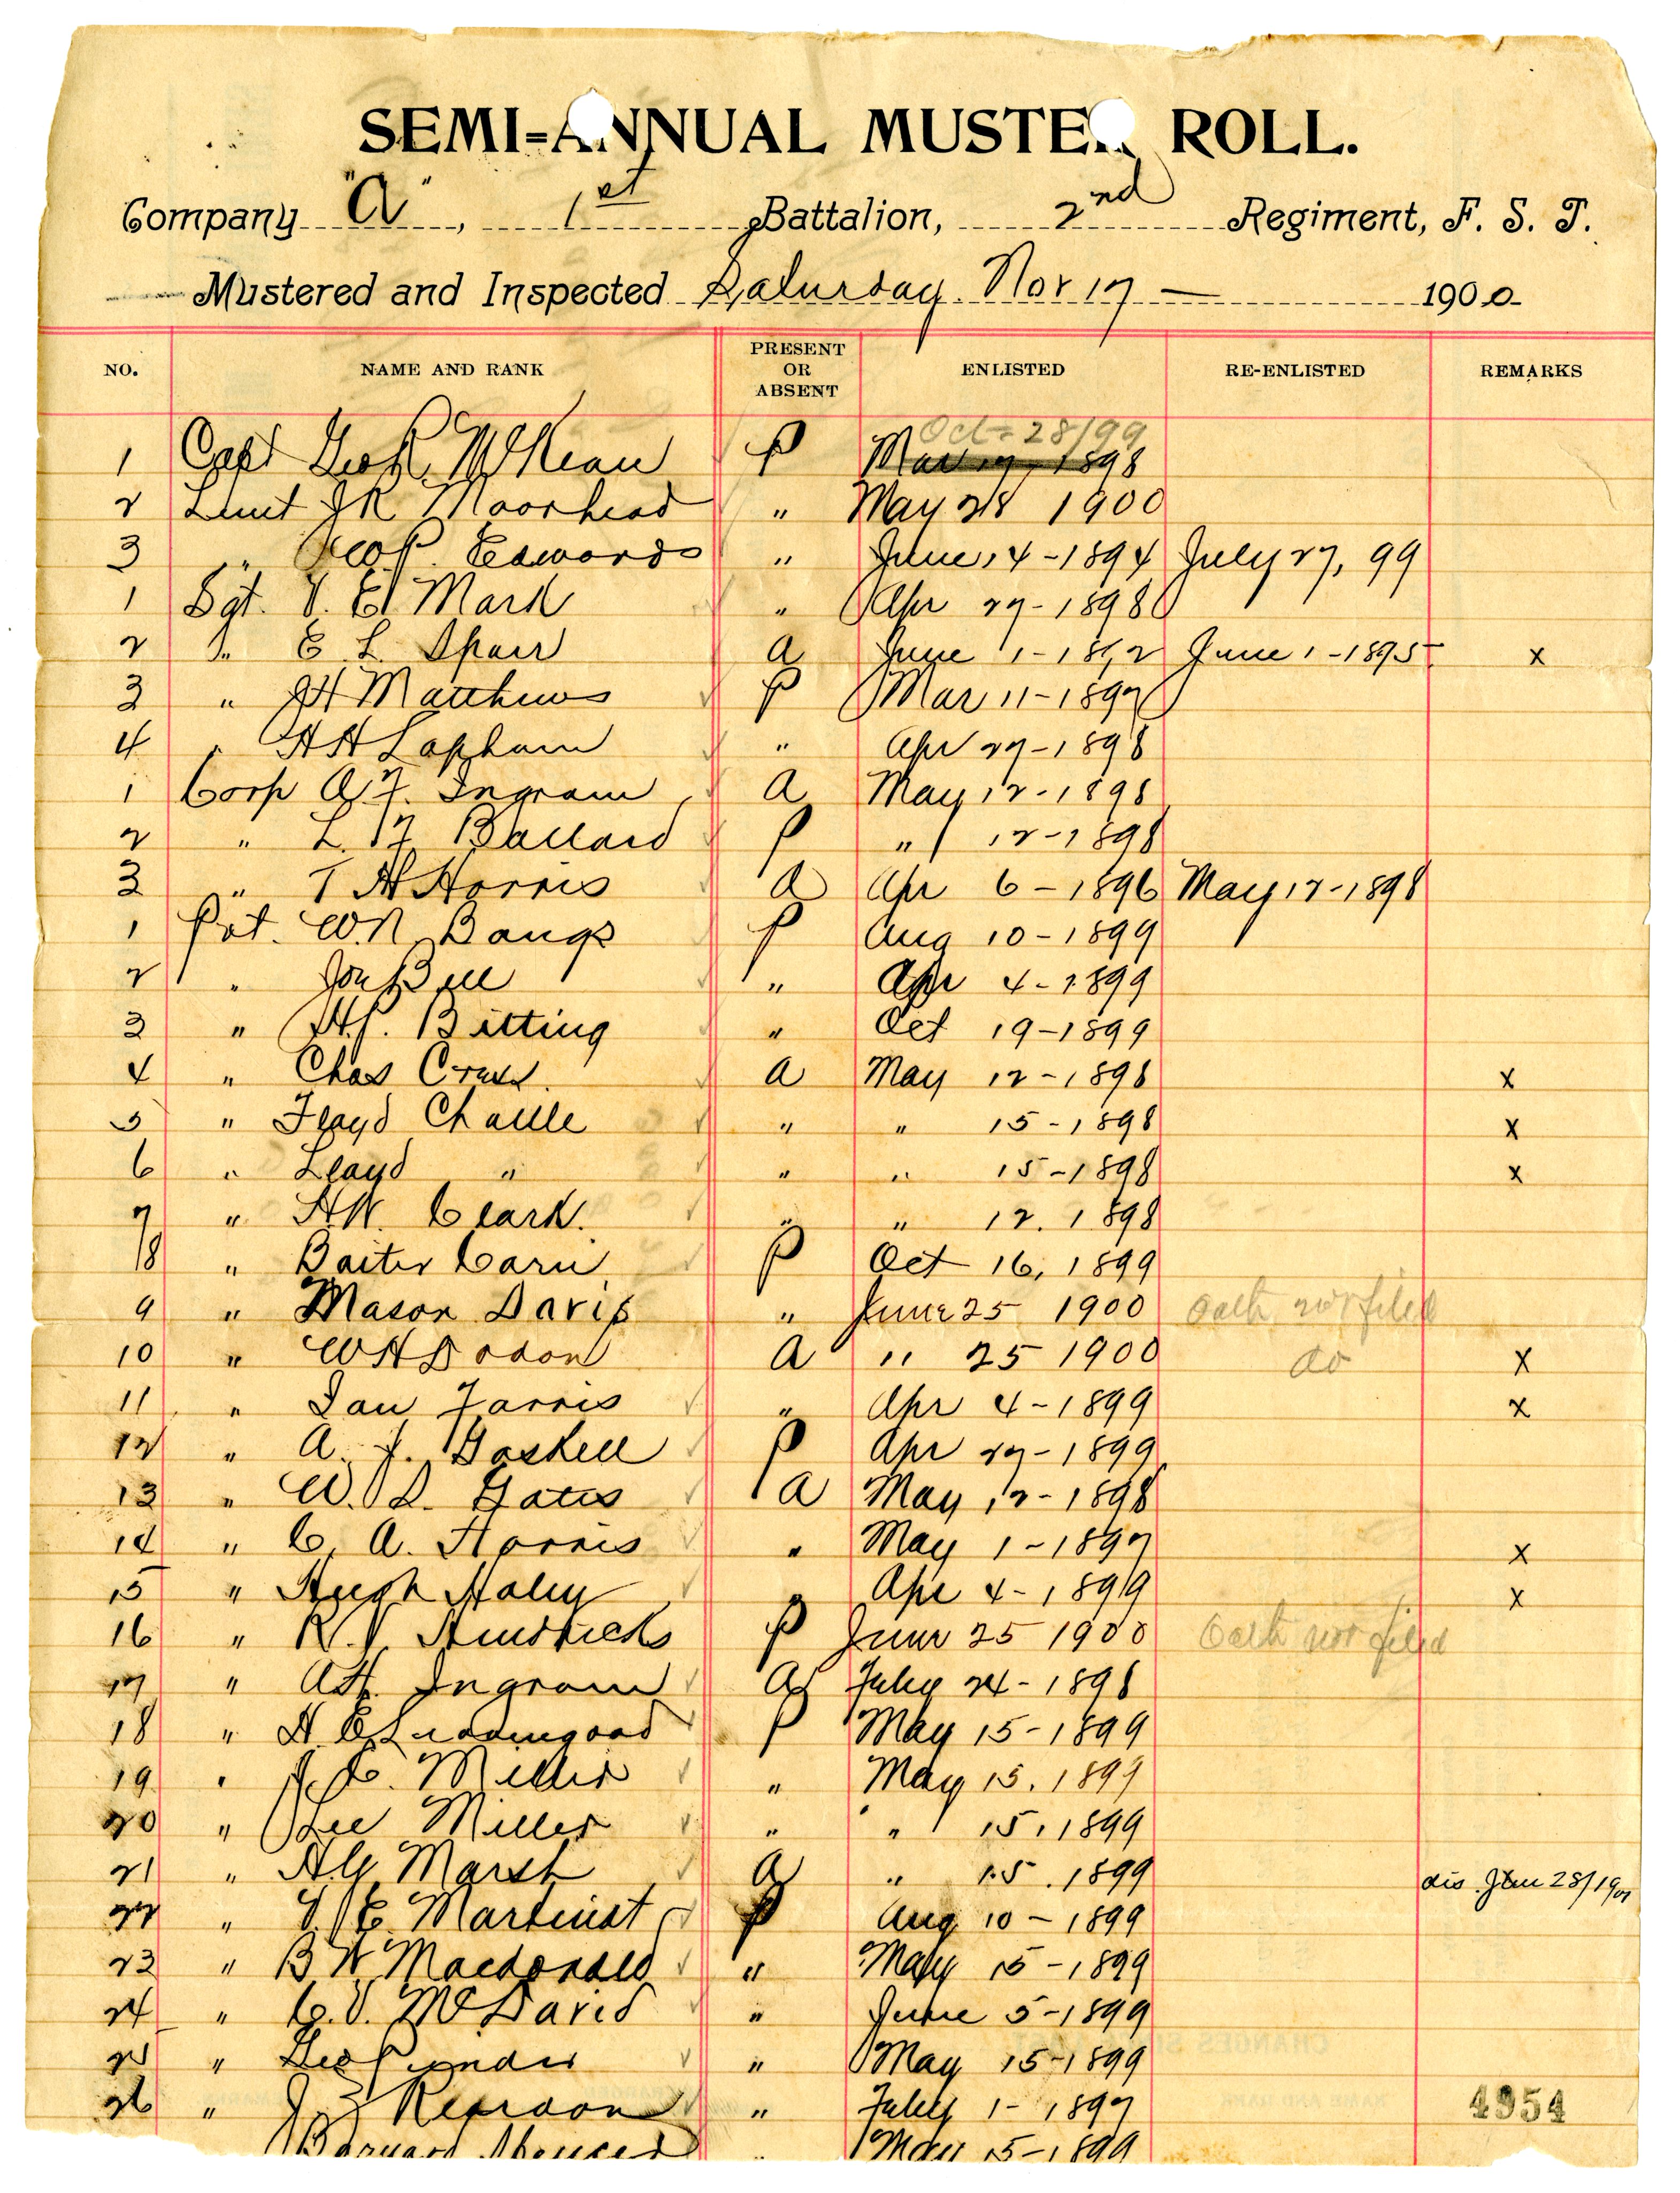 SEMI=ANNUAL MUSTER ROLL.
Company "A", 1st Battalion, 2nd Regiment, F. S. T.
Mustered and Inspected Saturday. Nov 17 — 1900
NO. NAME AND RANK PRESENT OR ABSENT ENLISTED RE-ENLISTED REMARKS
Oct 28/99
1 Capt Geo R. McKean P Mar 17, 1898
2 Lieut J R Moorhead " May 28 1900
3 " Geo P. Edwards " June 14-1894 July 27, 99
1 Sgt. V. E. Mark " Apr 27-1898
2 " E L Sparr A June 1-1892 June 1-1895 x
3 " J H Matthews P Mar 11-1897
4 " H H Lapham " Apr 27-1898
1 Corp A. F. Ingram A May 12-1898
2 " L. F. Ballard P " 12-1898
3 " T H Harris A Apr 6-1896 May 17-1898
1 Pvt. W. N. Bangs P Aug 10-1899
2 " Joe Bell " Apr 4-1899
3 " H. P. Bitting " Oct 19-1899
4 " Chas A May 12-1898 x
5 " Floyd " " 15-1898 x
6 " Lloyd " " " 15-1898 x
7 " H W. Clark. " " 12. 1898
8 " P Oct 16, 1899
9 " Mason Davis " June 25 1900 Oath not filed
10 " W H Dodon A " 25 1900 do x
11 " Farris " Apr 4-1899 x
12 " A. J. Gaskell P Apr 27-1899
13 " W. L. Gates A May 12-1898
14 " C. A. Harris " May 1-1897 x
15 " Hugh Haley " Apr 4-1899 x
16 " R. V. Hendricks P June 25 1900 Oath not filed
17 " A. H. Ingram A July 24-1898
18 " H. E. P May 15-1899
19 " J. C. Miller " May 15. 1899
20 " Lee Miller " " 15. 1899
21 " H G Marsh A " 15. 1899 dis Jan 28/1901
22 " V. E. P Aug 10-1899
23 " B W Macdonald " May 15-1899
24 " C. V. McDavid " June 5-1899
25 " Geo " May 15-1899
26 " J Reardon " July 1-1897
Barnard Spencer " May 15-1899
4954